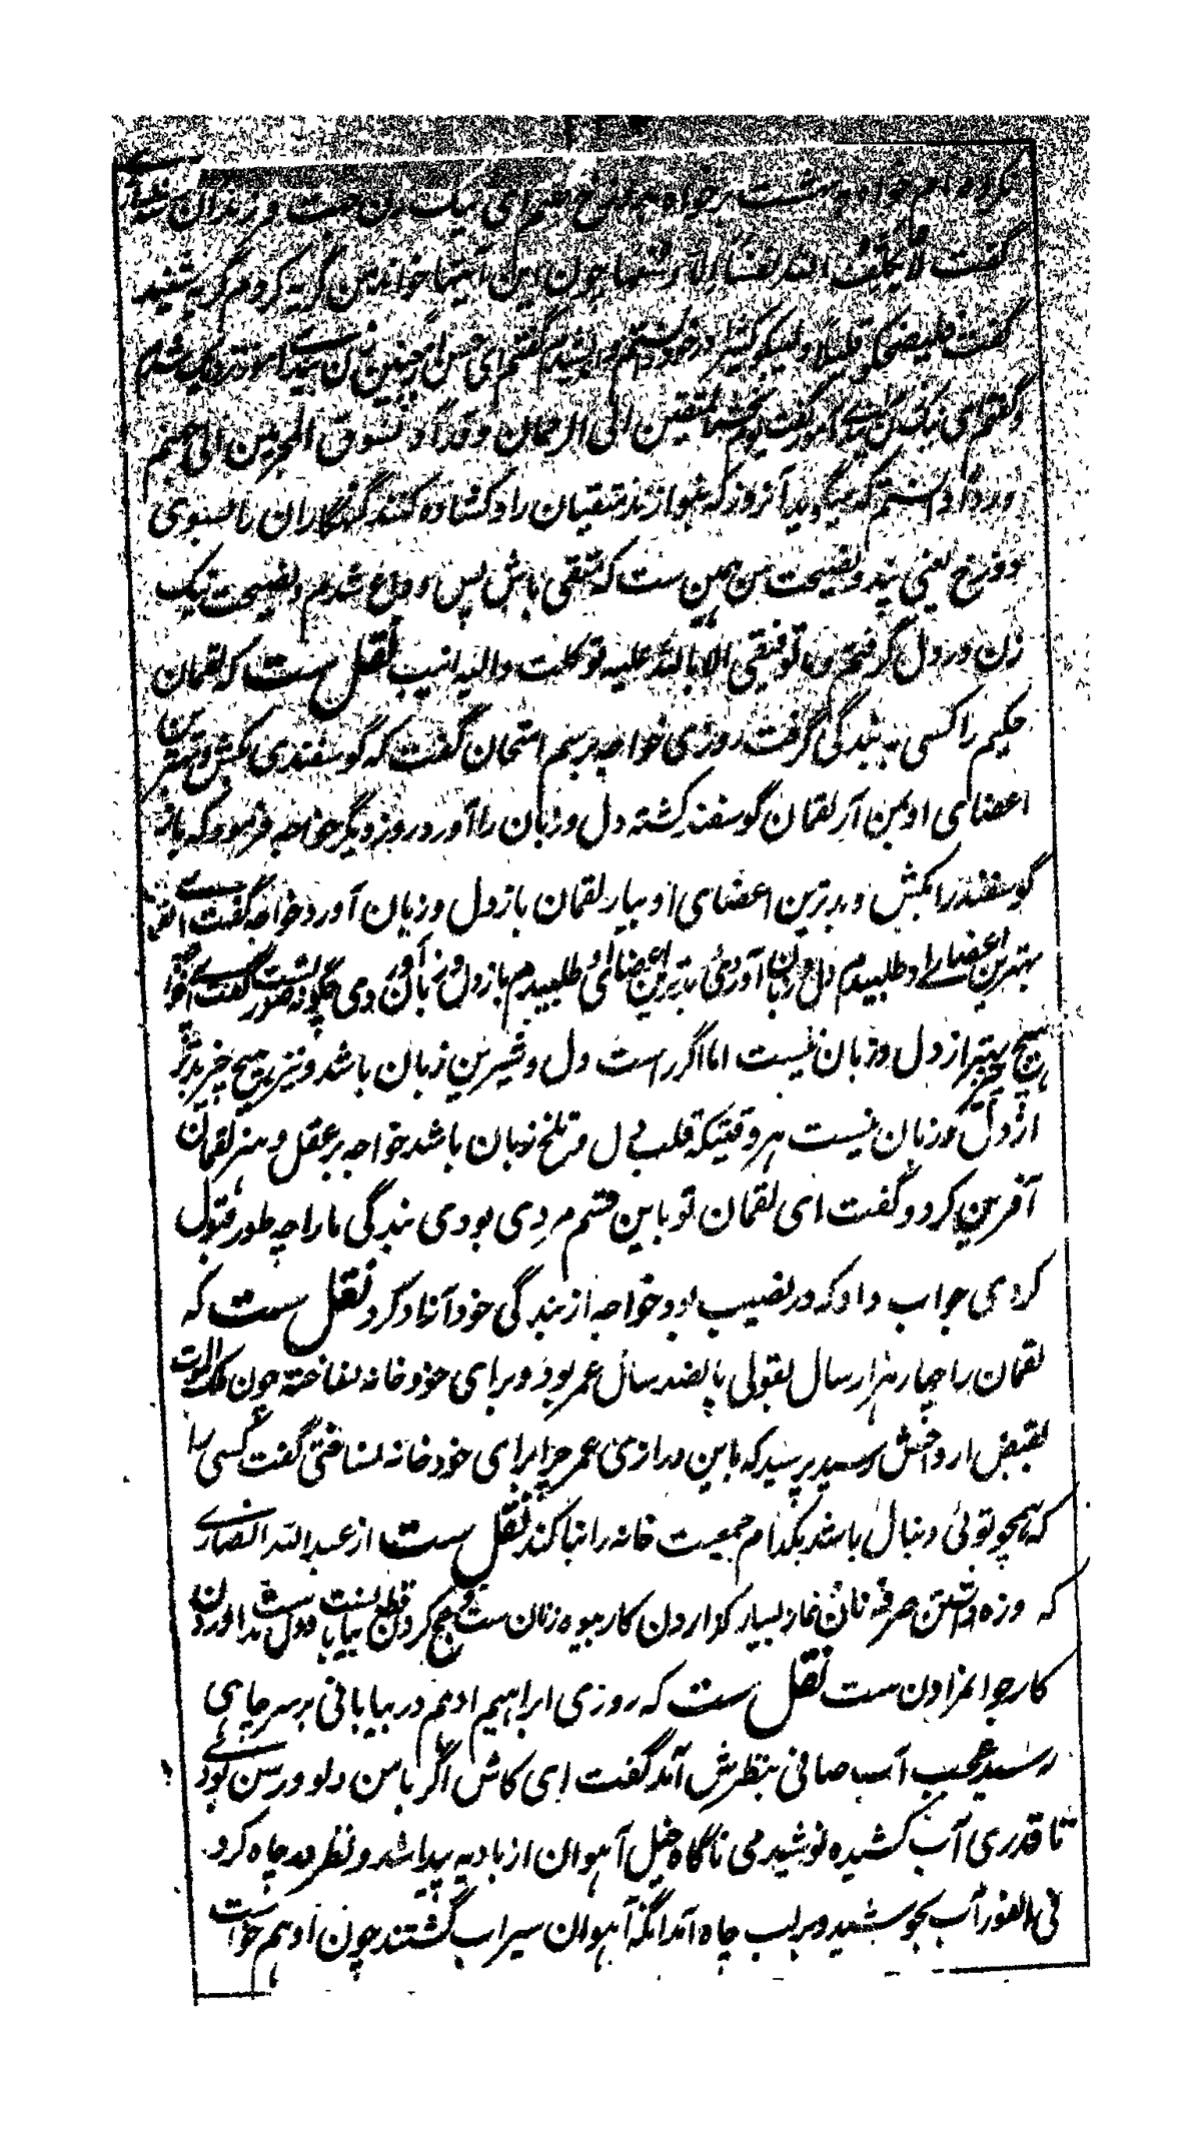 نکرده ام خواه بهشت برخواه بدوزخ گفتم ای نیک زن جفت و فرزندان
گفت لا یکلف الله نفسا الا وسعها چون این آیتها خواند من گریه کردم گریه شنید
گفت فلیضحکوا قلیلا ولیبکوا کثیرا در خود گفتم ای
وگفتم ای نیک زن گفت یوم نحشر المتقین الی الرحمن وفدا و نسوق المجرمین الی جهنم
وردا دانستم که میگوید آنروز که بنوازند متقیان را و کشاده کنند گنهگاران را بسوی
دوزخ یعنی پند و نصیحت من همین ست که متقی باش پس وداع شدم و نصیحت نیک
زن در دل گرفتم وما توفیقی الا بالله علیه توکلت والیه انیب نقل ست که لقمان
حکیم را کسی به بندگی گرفت روزی خواجه برسم امتحان گفت که گوسفندی بکش و بهترین
اعضای او بمن آر لقمان گوسفند کشته دل و زبان را آورد روز دیگر خواجه فرمود که باز
گوسفند را بکش و بدترین اعضای او بیار لقمان باز دل و زبان آورد خواجه گفت ای لقمان
بهترین اعضای او طلبیدم دل و زبان آوردی بدترین اعضای او طلبیدم باز دل و زبان آوردی چگونه صورتست گفت ای خواجه
هیچ چیز بهتر از دل و زبان نیست اما اگر راست دل و شیرین زبان باشد و نیز هیچ چیز بدتر
از دل و زبان نیست هر وقتیکه قلب دل و تلخ زبان باشد خواجه بر عقل و هنر لقمان
آفرین کرد و گفت ای لقمان تو باین قسم مردی بودی بندگی ما را چه طور قبول
کردی جواب داد که در نصیب بود خواجه از بندگی خود آزاد کرد نقل ست که
لقمان را چهار هزار سال بقولی پانصد سال عمر بود و برای خود خانه نساخته چون ملک الموت
بقبض ارواحش رسید پرسید که باین درازی عمر چرا برای خود خانه نساختی گفت کسی را
که همچو توئی دنبال باشد بکدام جمعیت خانه را بنا کند نقل ست از عبدالله انصاری
که روزه داشتن صرفه نان نماز بسیار گذاردن کار بیوه زنان ست و حج کردن قطع بیابانست دل بدست آوردن
کار جوانمردان ست نقل ست که روزی ابراهیم ادهم در بیابانی بر سر چاهی
رسید عجب آب صافی بنظرش آمد گفت ای کاش اگر با من دلو و رسن بودی
تا قدری آب کشیده نوشیدمی ناگاه خیل آهوان از بادیه پیدا شد و نظر در چاه کرد
فی الفور آب بجوشید و برلب چاه آمد آنگه آهوان سیراب گشتند چون ادهم خواست